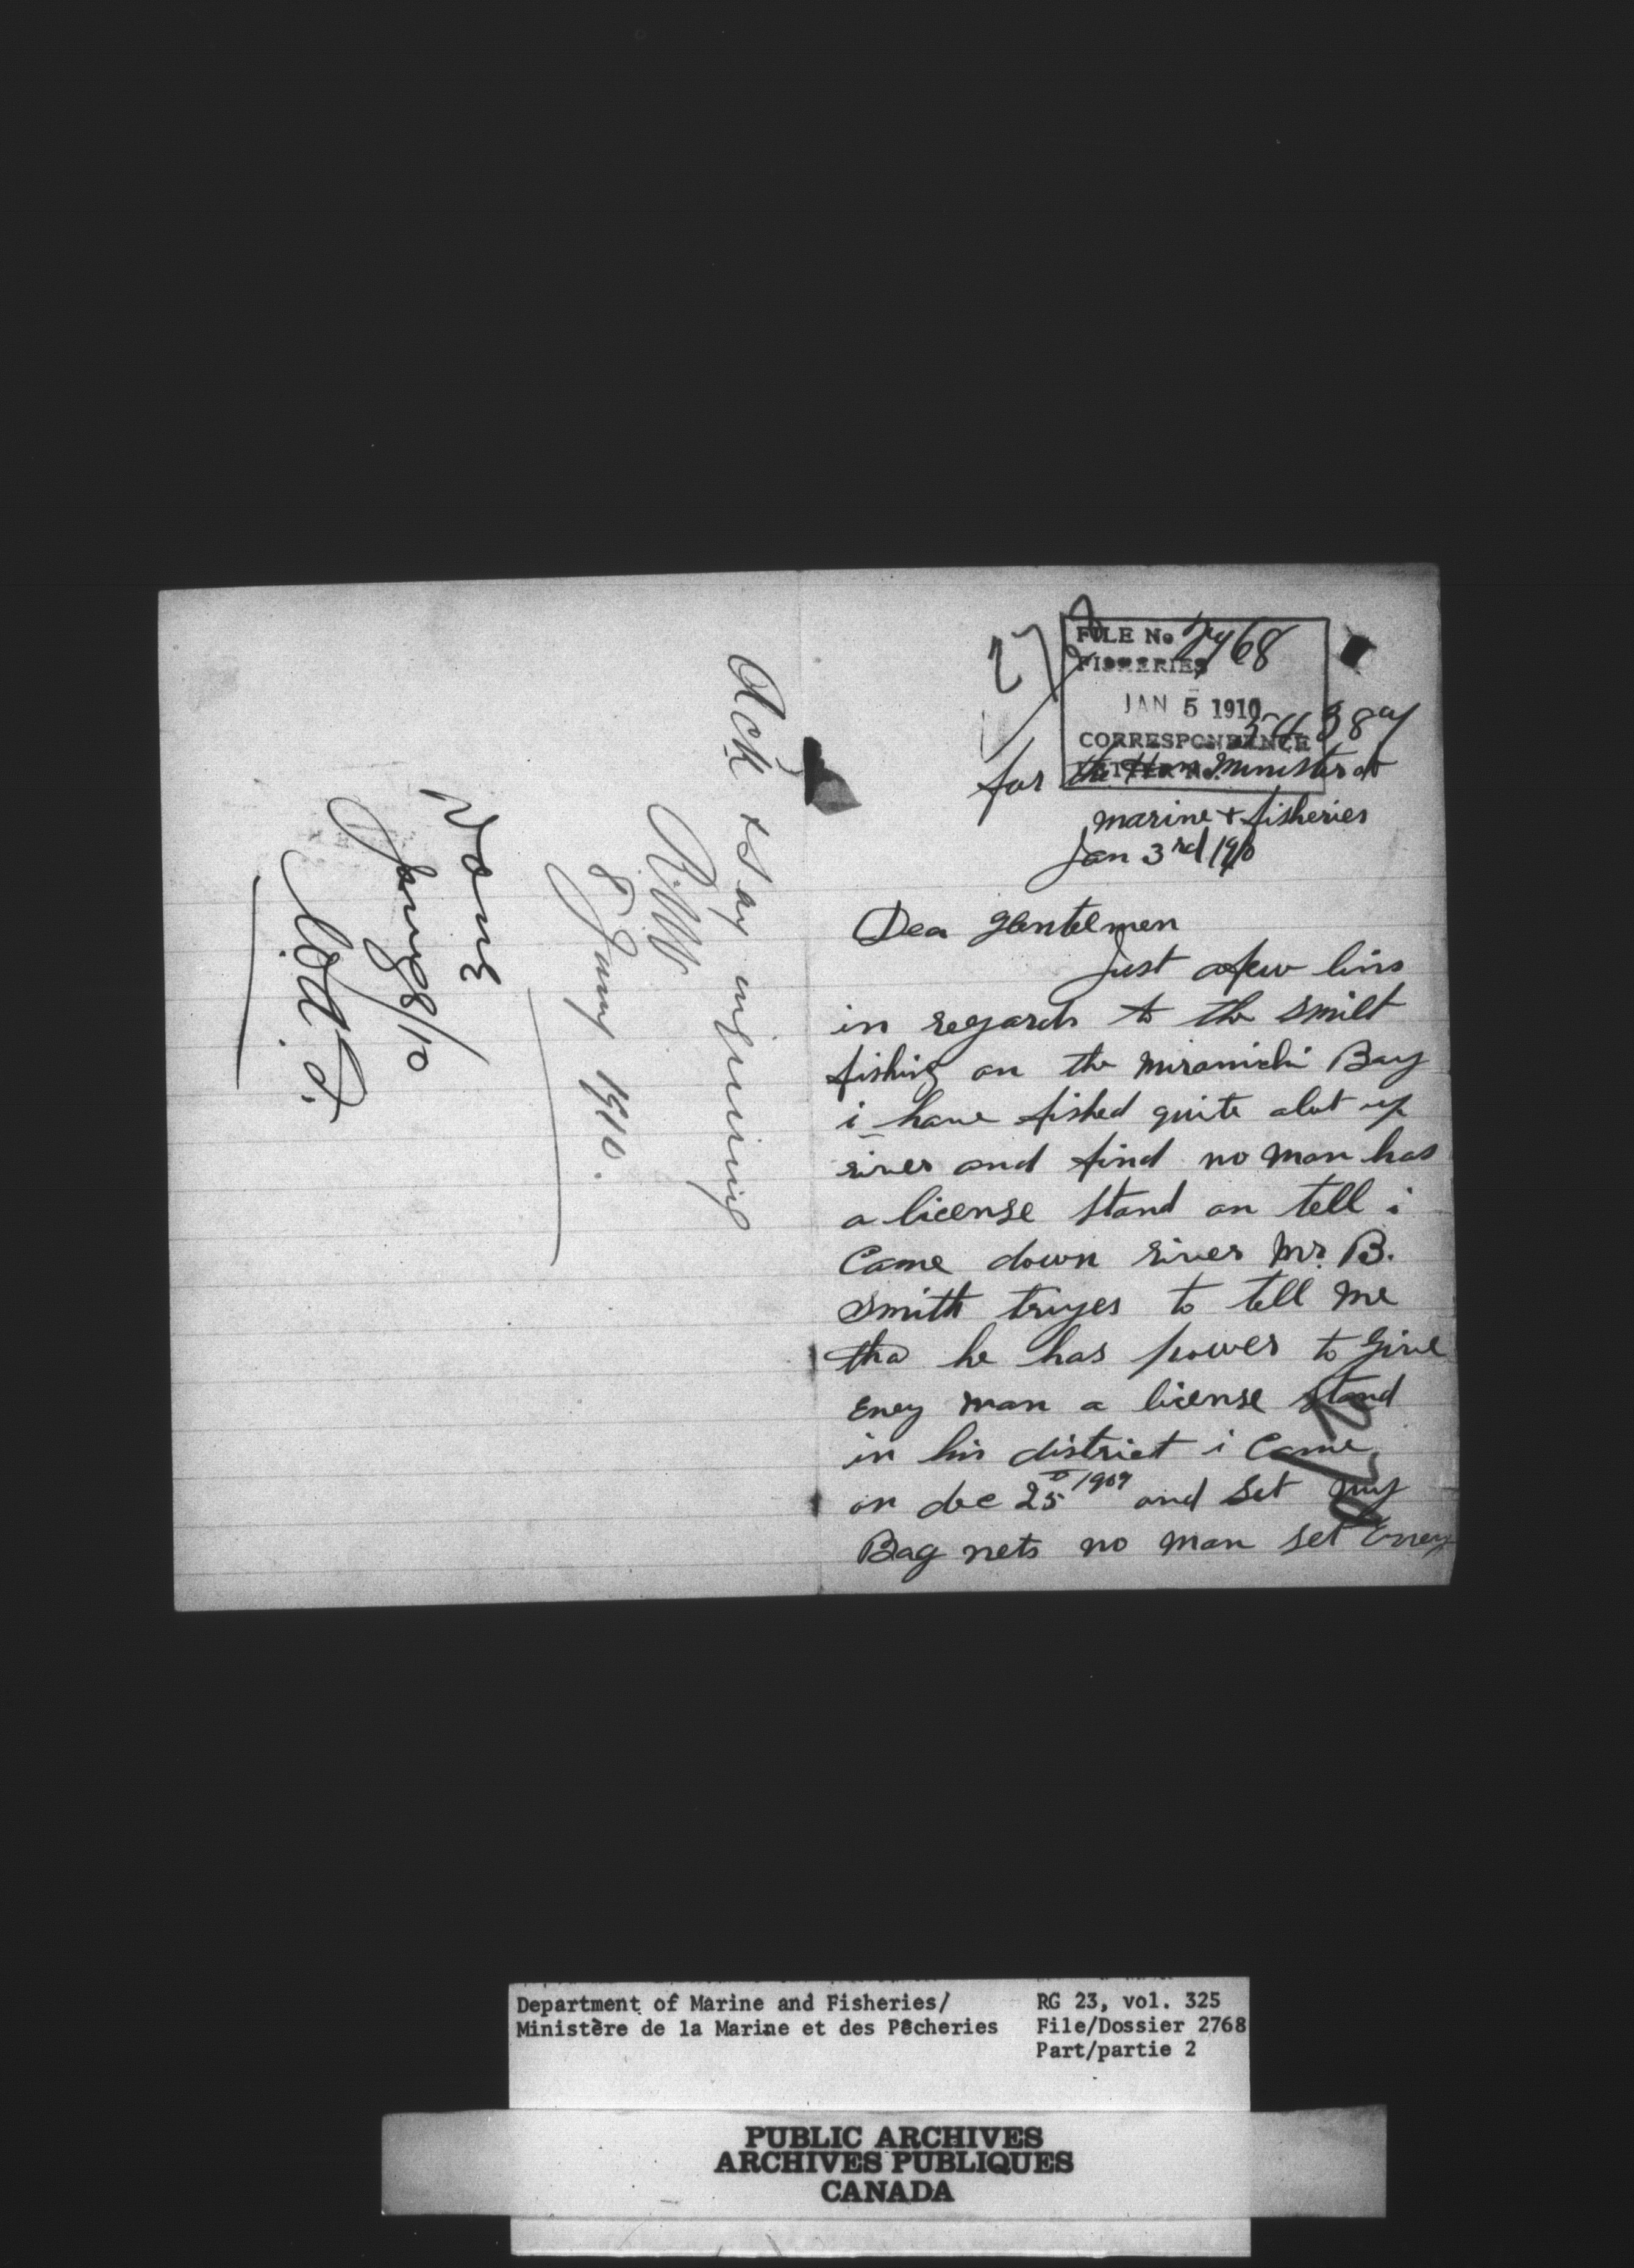 Ack & say inquiring
R.W
8 Jany 1910.
Done
Jany 8/10
FILE No 2768
FISHERIES
JAN 5 1910
CORRESPONDENCE
for the Hon Minister of
marine & fisheries
Jan 3rd 1910
Dea gentelmen
Just afew lins
in regards to the smilt
fishing on the miramichi Bay
i have fished quite alot up
river and find no man has
a license stand on tell i
Came down river Mr. B.
Smith truyes to tell me
tha he has power to give
eney man a license stand
in his district i Came
on dec 25 1909 and set my
Bag nets no man set eney
Department of Marine and Fisheries/
Ministère de la Marine et des Pêcheries
RG 23, vol. 325
File/Dossier 2768
Part/partie 2
PUBLIC ARCHIVES
ARCHIVES PUBLIQUES
CANADA